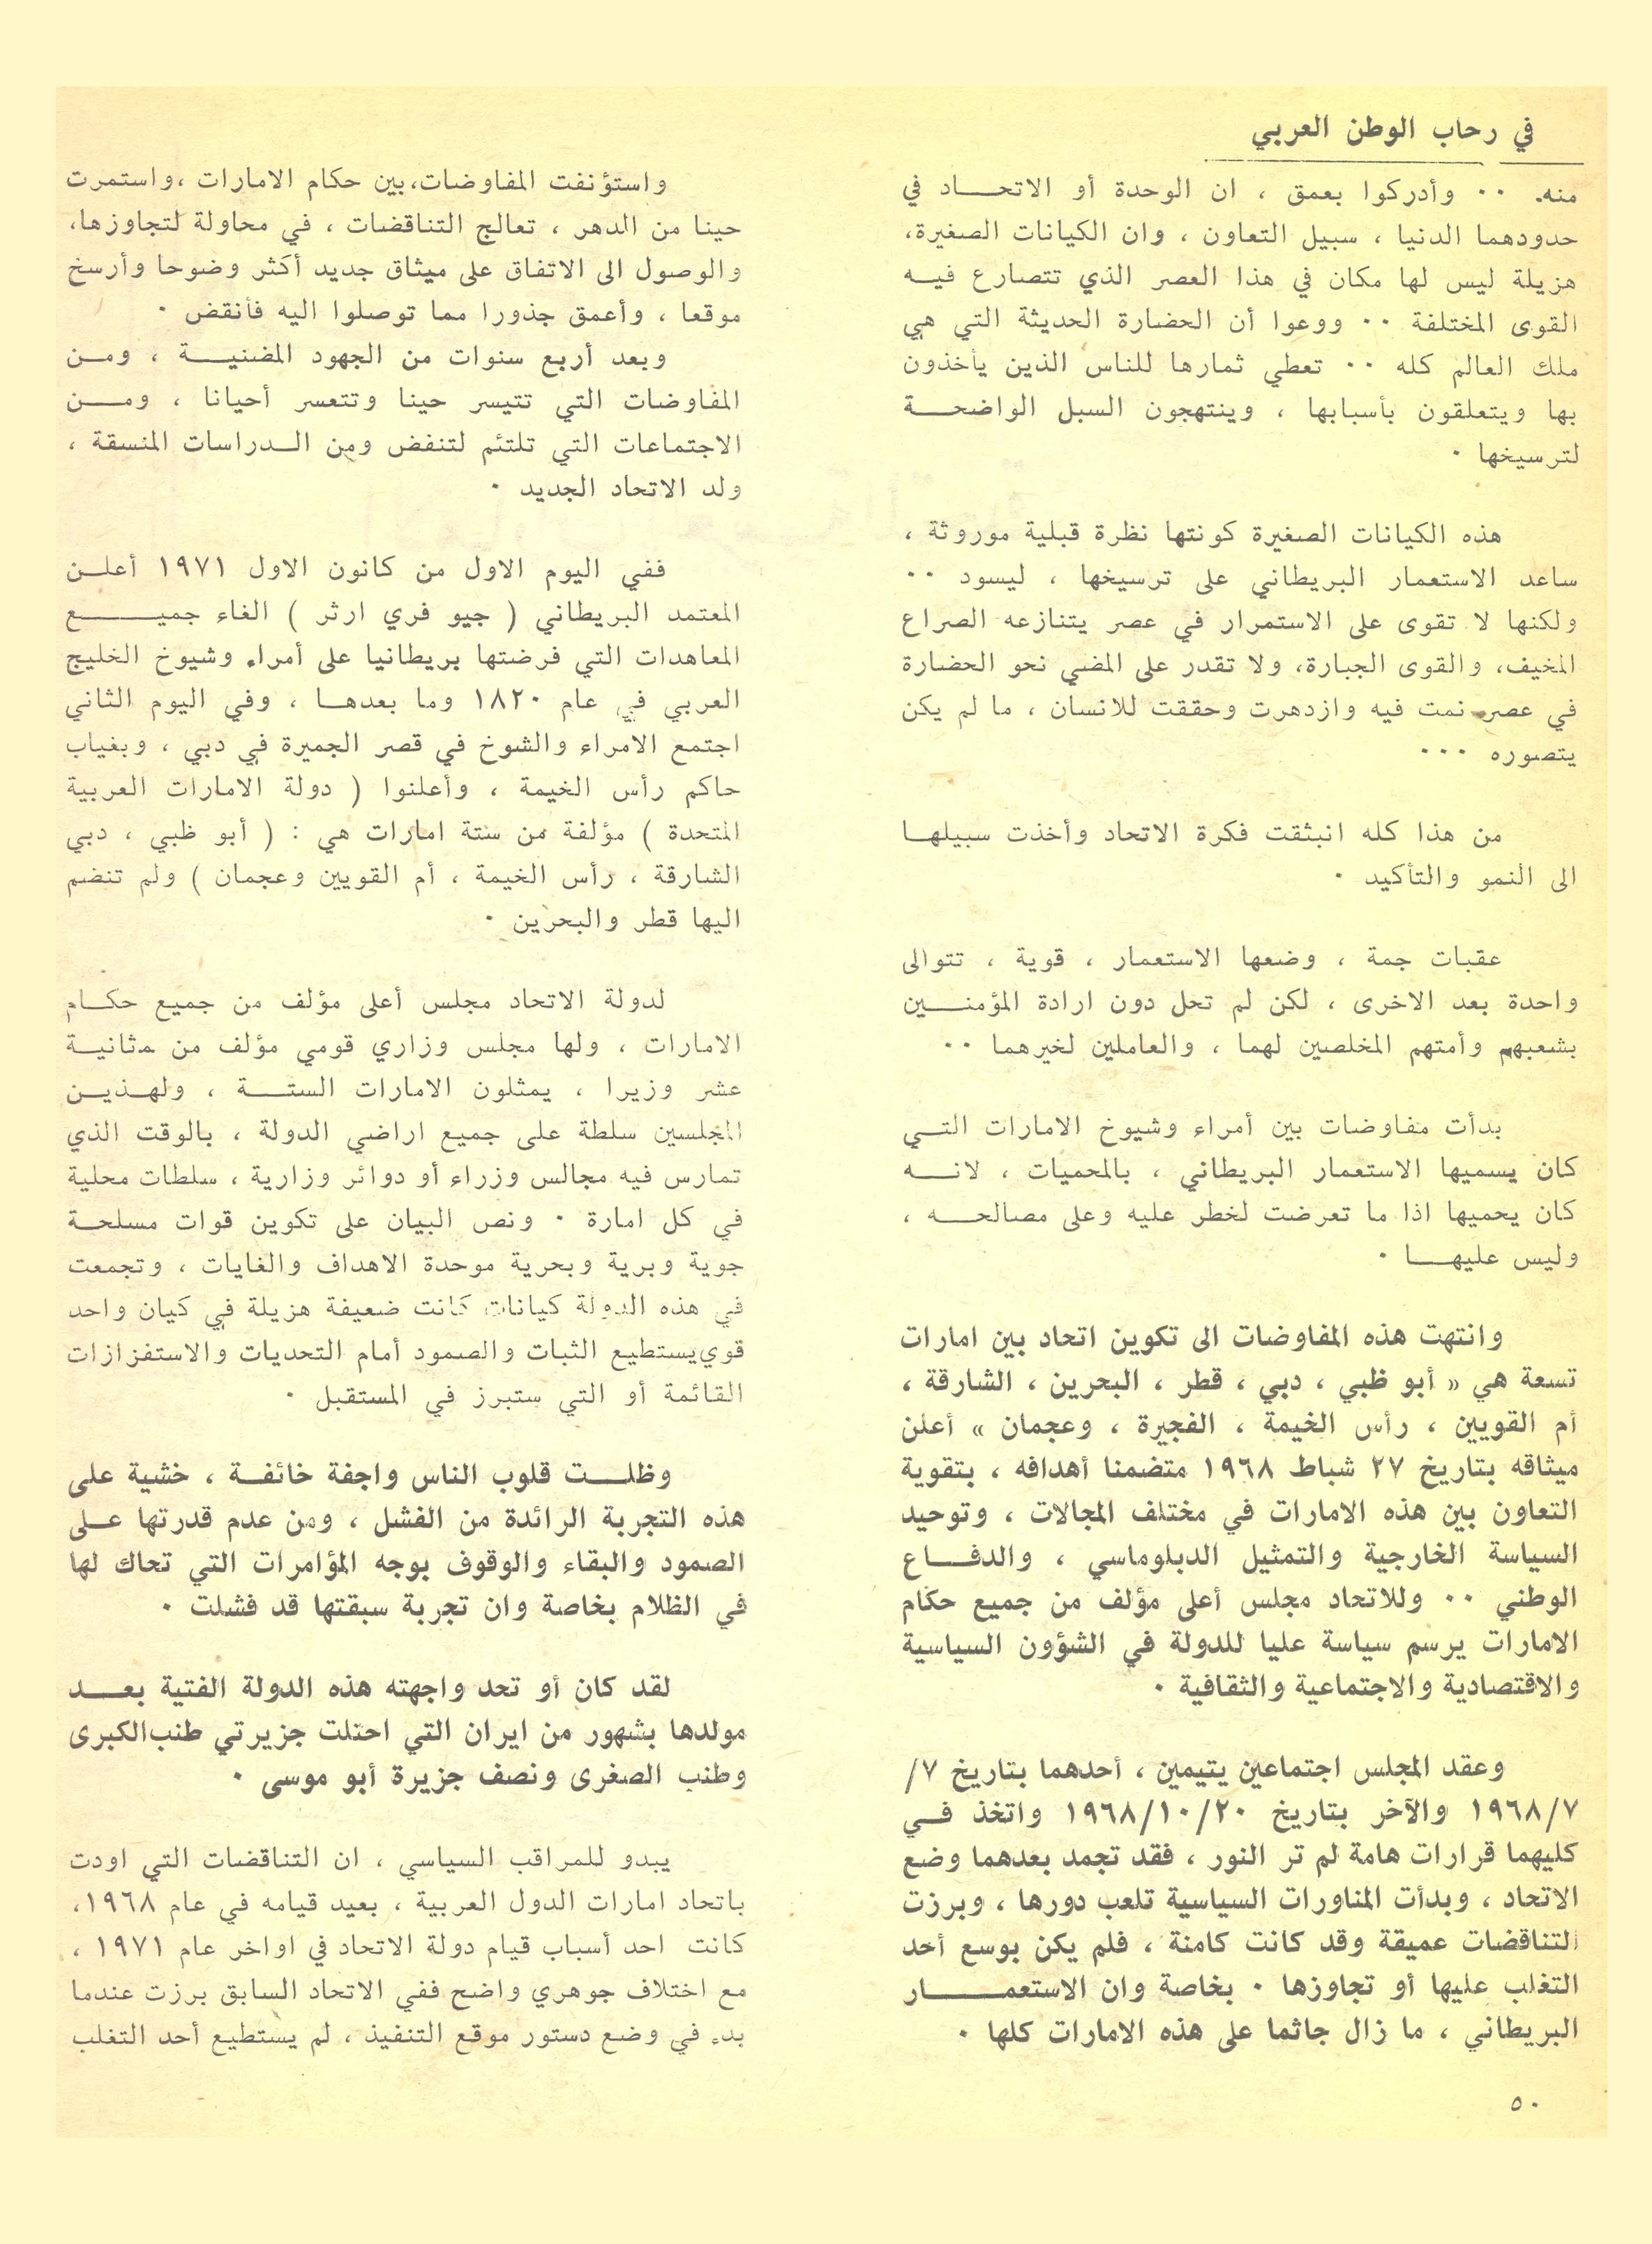 في رحاب الوطن العربي
منه. ٠٠ وأدركوا بعمق ، ان الوحدة أو الاتحـــاد في
حدودهما الدنيا ، سبيل التعاون ، وان الكيانات الصغيرة،
هزيلة ليس لها مكان في هذا العصر الذي تتصارع فيــه
القوى المختلفة ٠٠ ووعوا أن الحضارة الحديثة التي هي
ملك العالم كله ٠٠ تعطي ثمارها للناس الذين يأخذون
بها ويتعلقون بأسبابها ، وينتهجون السبل الواضحـــة
لترسيخها ٠
هذه الكيانات الصغيرة كونتها نظرة قبلية موروثة ،
ساعد الاستعمار البريطاني على ترسيخها ، ليسود ٠٠
ولكنها لا تقوى على الاستمرار في عصر يتنازعه الصراع
المخيف، والقوى الجبارة، ولا تقدر على المضي نحو الحضارة
في عصر نمت فيه وازدهرت وحققت للانسان ، ما لم يكن
يتصوره ٠٠٠
من هذا كله انبثقت فكرة الاتحاد وأخذت سبيلهــا
الى النمو والتأكيد ٠
عقبات جمة ، وضعها الاستعمار ، قوية ، تتوالى
واحدة بعد الاخرى ، لكن لم تحل دون ارادة المؤمنـــين
بشعبهم وأمتهم المخلصين لهما ، والعاملين لخيرهما ٠٠
بدأت مفاوضات بين أمراء وشيوخ الامارات التــي
كان يسميها الاستعمار البريطاني ، بالمحميات ، لانـــه
كان يحميها اذا ما تعرضت لخطر عليه وعلى مصالحـــه ،
وليس عليهـــا ٠
وانتهت هذه المفاوضات الى تكوين اتحاد بين امارات
تسعة هي « أبو ظبي ، دبي ، قطر ، البحرين ، الشارقة ،
أم القويين ، رأس الخيمة ، الفجيرة ، وعجمان » أعلن
ميثاقه بتاريخ ٢٧ شباط ١٩٦٨ متضمنا أهدافه ، بتقوية
التعاون بين هذه الامارات في مختلف المجالات ، وتوحيد
السياسة الخارجية والتمثيل الدبلوماسي ، والدفـــاع
الوطني ٠٠ وللاتحاد مجلس أعلى مؤلف من جميع حكام
الامارات يرسم سياسة عليا للدولة في الشؤون السياسية
والاقتصادية والاجتماعية والثقافية ٠
وعقد المجلس اجتماعين يتيمين ، أحدهما بتاريخ ٧/
١٩٦٨/٧ والآخر بتاريخ ١٩٦٨/١٠/٢٠ واتخذ فــي
كليهما قرارات هامة لم تر النور ، فقد تجمد بعدهما وضع
الاتحاد ، وبدأت المناورات السياسية تلعب دورها ، وبرزت
التناقضات عميقة وقد كانت كامنة ، فلم يكن بوسع أحد
التغلب عليها أو تجاوزها ٠ بخاصة وان الاستعمـــــار
البريطاني ، ما زال جاثما على هذه الامارات كلها ٠
واستؤنفت المفاوضات،بين حكام الامارات ،واستمرت
حينا من الدهر ، تعالج التناقضات ، في محاولة لتجاوزها،
والوصول الى الاتفاق على ميثاق جديد أكثر وضوحا وأرسخ
موقعا ، وأعمق جذورا مما توصلوا اليه فأنقض ٠
وبعد أربع سنوات من الجهود المضنيـــة ، ومــن
المفاوضات التي تتيسر حينا وتتعسر أحيانا ، ومـــن
الاجتماعات التي تلتئم لتنفض ومن الــدراسات المنسقة ،
ولد الاتحاد الجديد ٠
ففي اليوم الاول من كانون الاول ١٩٧١ أعلــن
المعتمد البريطاني ( جيو فري ارثر ) الغاء جميـــــع
المعاهدات التي فرضتها بريطانيا على أمراء وشيوخ الخليج
العربي في عام ١٨٢٠ وما بعدهــا ، وفي اليوم الثاني
اجتمع الامراء والشوخ في قصر الجميرة في دبي ، وبغياب
حاكم رأس الخيمة ، وأعلنوا ( دولة الامارات العربية
المتحدة ) مؤلفة من ستة امارات هي : ( أبو ظبي ، دبي
الشارقة ، رأس الخيمة ، أم القويين وعجمان ) ولم تنضم
اليها قطر والبحرين ٠
لدولة الاتحاد مجلس أعلى مؤلف من جميع حكــام
الامارات ، ولها مجلس وزاري قومي مؤلف من مثانيــة
عشر وزيرا ، يمثلون الامارات الستـــة ، ولهــذيــن
المجلسين سلطة على جميع اراضي الدولة ، بالوقت الذي
تمارس فيه مجالس وزراء أو دوائر وزارية ، سلطات محلية
في كل امارة ٠ ونص البيان على تكوين قوات مسلحــة
جوية وبرية وبحرية موحدة الاهداف والغايات ، وتجمعت
في هذه الدولة كيانات كانت ضعيفة هزيلة في كيان واحد
قوي يستطيع الثبات والصمود أمام التحديات والاستفزازات
القائمة أو التي ستبرز في المستقبل ٠
وظلـــت قلوب الناس واجفة خائفــة ، خشية على
هذه التجربة الرائدة من الفشل ، ومن عدم قدرتها علــى
الصمود والبقاء والوقوف بوجه المؤامرات التي تحاك لها
في الظلام بخاصة وان تجربة سبقتها قد فشلت ٠
لقد كان أو تحد واجهته هذه الدولة الفتية بعـــد
مولدها بشهور من ايران التي احتلت جزيرتي طنب الكبرى
وطنب الصغرى ونصف جزيرة أبو موسى ٠
يبدو للمراقب السياسي ، ان التناقضات التي اودت
باتحاد امارات الدول العربية ، بعيد قيامه في عام ١٩٦٨،
كانت احد أسباب قيام دولة الاتحاد في اواخر عام ١٩٧١ ،
مع اختلاف جوهري واضح ففي الاتحاد السابق برزت عندما
بدء في وضع دستور موقع التنفيذ ، لم يستطيع أحد التغلب
٥٠